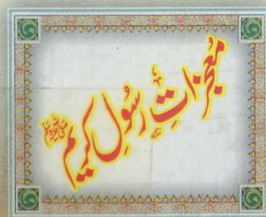 معجزاتِ رسُولِ کریم ﷺ